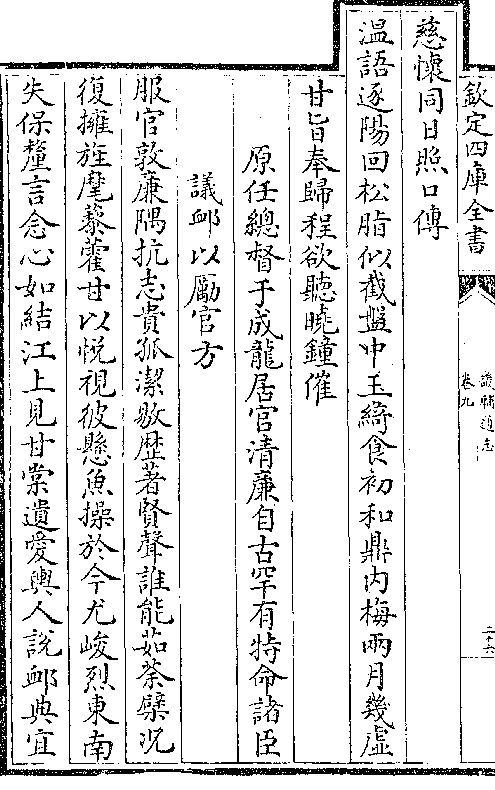 欽定四庫全書
畿輔通志
卷九
二十六
慈懷同日照口傳
温語逐陽回松脂似截盤中玉綺食初和鼎内梅兩月幾虛
甘旨奉歸程欲聽曉鐘催
原任總督于成龍居官清廉自古罕有特命諸臣
議卹以勵官方
服官敦廉隅抗志貴孤潔敭歴著賢聲誰能茹荼櫱况
復擁旌麾藜藿甘以悦視彼懸魚操於今尤峻烈東南
失保釐言念心如結江上見甘棠遺愛輿人說卹典宜